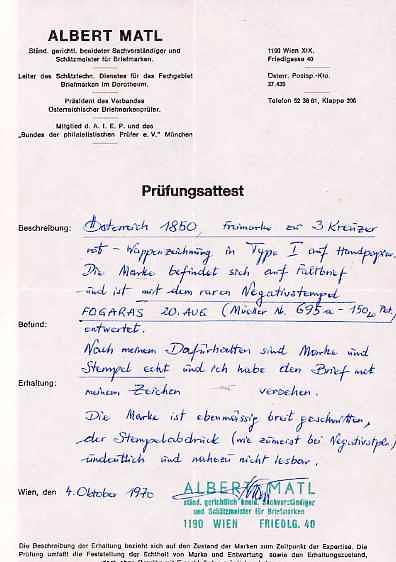 ALBERT MATL
Ständ. gerichtl. beeideter Sachverständiger und
Schätzmeister für Briefmarken.
Leiter des Schätztechn. Dienstes für das Fachgebiet
Briefmarken im Dorotheum.
Präsident des Verbandes
Österreichischer Briefmarkenprüfer.
Mitglied d. A. I. E. P. und des
„Bundes der philatelistischen Prüfer e. V." München
1190 Wien XIX.
Friedlgasse 40
Österr. Postsp.-Kto.
37.435
Telefon 52 38 81, Klappe 206
Prüfungsattest
Beschreibung: Österreich 1850, Freimarke zu 3 Kreuzer
rot - Wappenzeichnung in Type I auf Handpapier.
Die Marke befindet sich auf Faltbrief
und ist mit dem raren Negativstempel
FOGARAS 20. AUG (Müller Nr. 695a - 150 Pkt.)
Befund: entwertet.
Nach meinem Dafürhalten sind Marke und
Stempel echt und ich habe den Brief mit
Erhaltung: meinem Zeichen versehen.
Die Marke ist ebenmässig breit geschnitten,
der Stempelabdruck (wie zumeist bei Negativstpln)
undeutlich und nahezu nicht lesbar.
Wien, den 4. Oktober 1970
ALBERT MATL
ständ. gerichtlich beeid. Sachverständiger
und Schätzmeister für Briefmarken
1190 WIEN FRIEDLG. 40
Die Beschreibung der Erhaltung bezieht sich auf den Zustand der Marken zum Zeitpunkt der Expertise. Die
Prüfung umfaßt die Feststellung der Echtheit von Marke und Entwertung sowie den Erhaltungszustand,